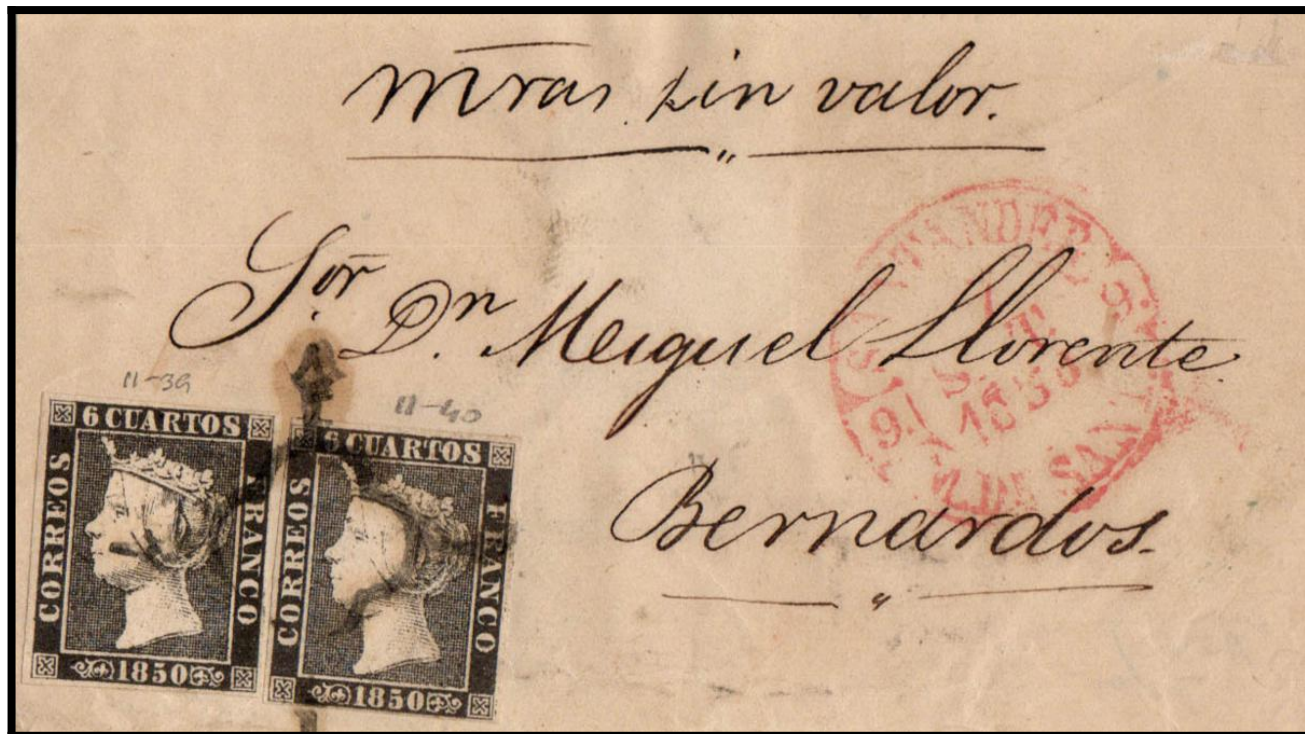 Mras sin valor.
Sor Dn Meiguel Llorente
Bernardos.
SANTANDER
1
ST.
1850
11-39
11-40
6 CUARTOS
CORREOS
FRANCO
1850
6 CUARTOS
CORREOS
FRANCO
1850